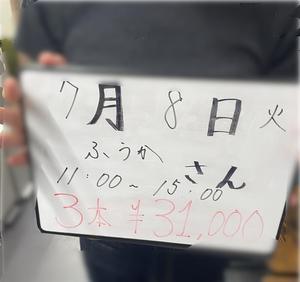 7月8日火
ふうかさん
11:00~15:00
3本 ¥31,000